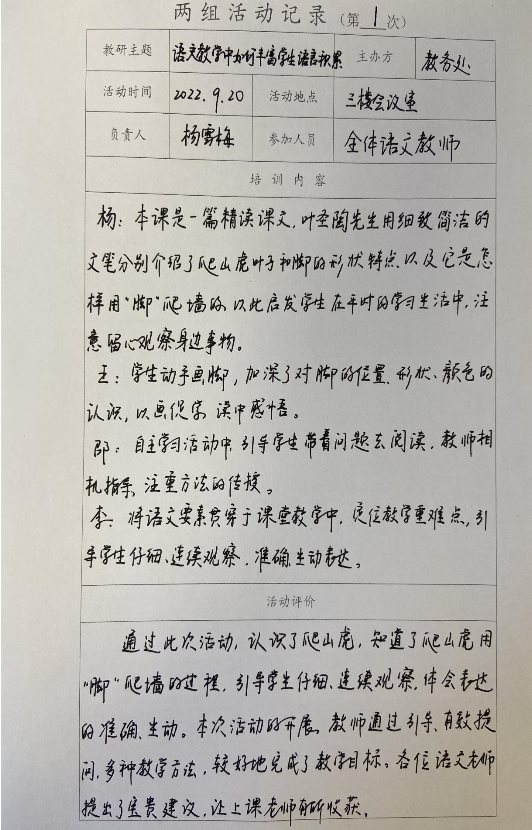 两组活动记录（第1次）
教研主题 语文教学中如何丰富学生语言积累 主办方 教务处
活动时间 2022.9.20 活动地点 三楼会议室
负责人 杨雪梅 参加人员 全体语文教师
培训内容
杨：本课是一篇精读课文，叶圣陶先生用细致简洁的
文笔分别介绍了爬山虎叶子和脚的形状特点以及它是怎
样用“脚”爬墙的，以此启发学生在平时的学习生活中，注
意留心观察身边事物。
王：学生动手画脚，加深了对脚的位置、形状、颜色的
认识，以画促学，读中感悟。
邵：自主学习活动中，引导学生带着问题去阅读，教师相
机指导，注重方法的传授。
李：将语文要素贯穿于课堂教学中，定位教学重难点，引
导学生仔细、连续观察，准确、生动表达。
活动评价
通过此次活动，认识了爬山虎，知道了爬山虎用
“脚”爬墙的过程，引导学生仔细、连续观察，体会表达
的准确、生动。本次活动的开展，教师通过引导、有效提
问，多种教学方法，较好地完成了教学目标，各位语文老师
提出了宝贵建议，让上课老师有所收获。